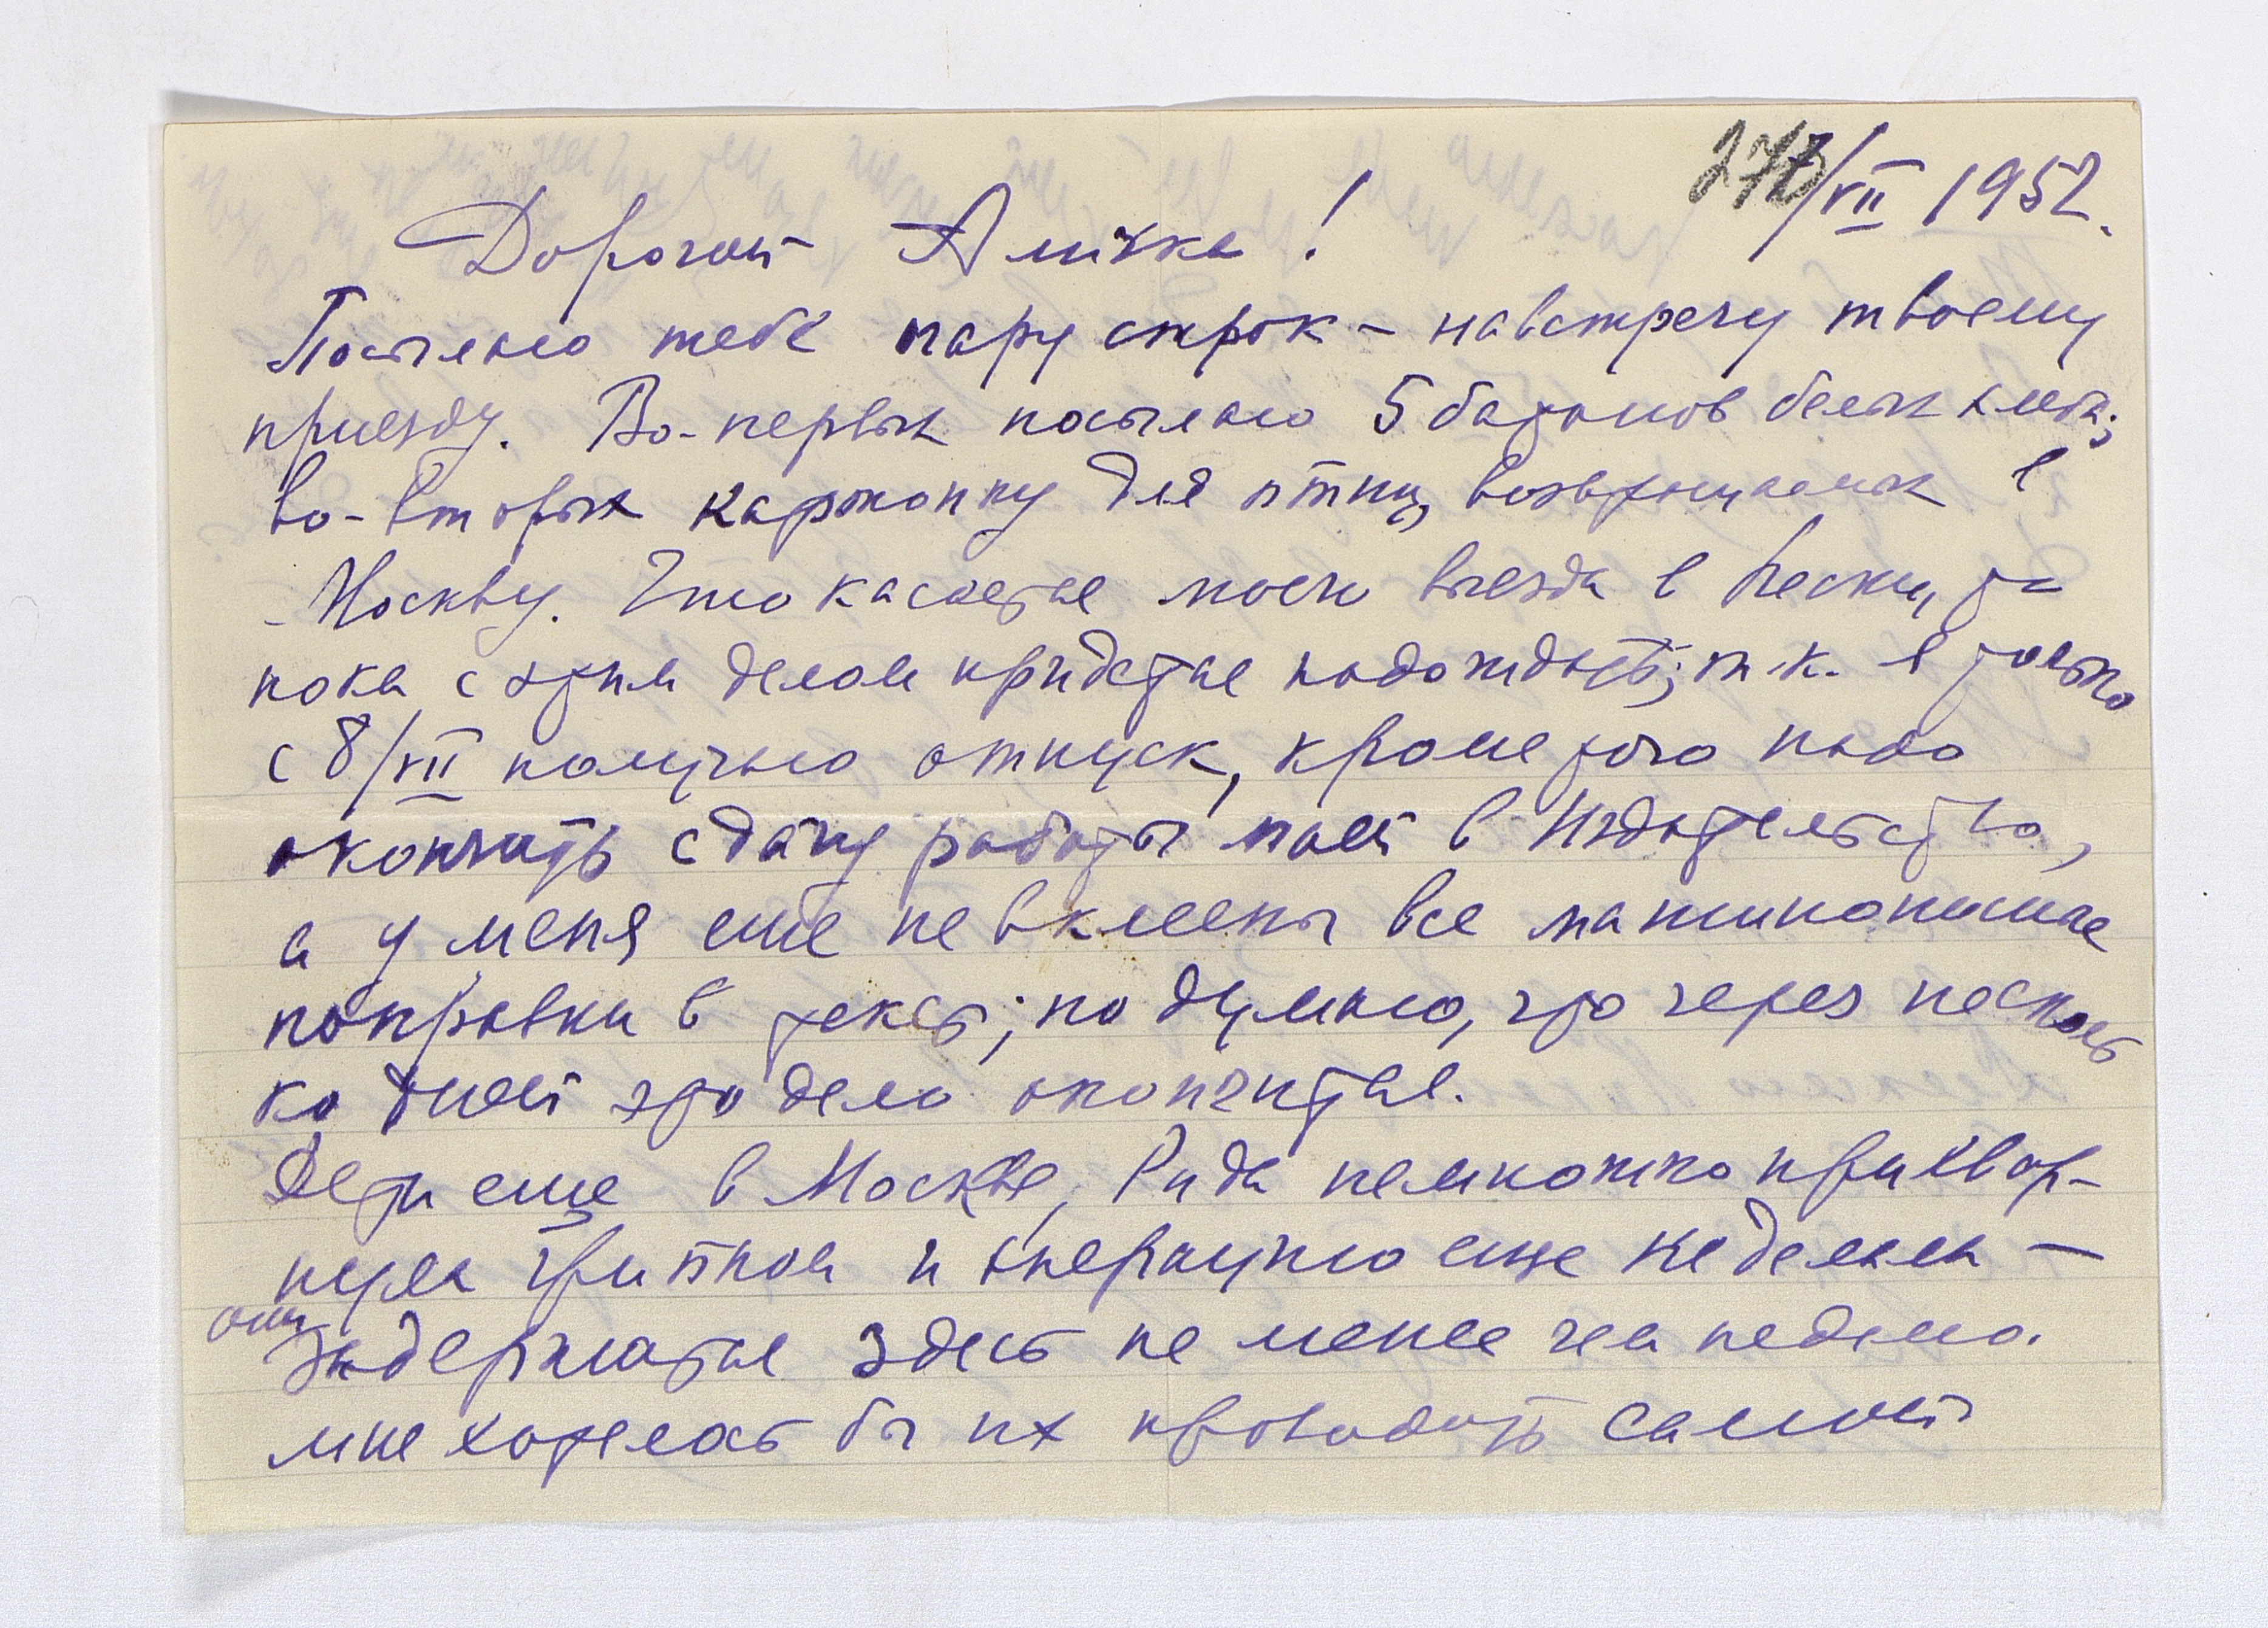 7/VII 1952.
Дорогой Алинка!
Посылаю тебе пару строк – навстречу твоему
приезду. Во-первых посылаю 5 батонов белых хлеба;
во-вторых картонку для птиц, возвращаемых в
Москву. Что касается моего выезда в Пески, то
пока с этим делом придется подождать; т.к. я только
с 8/VII получаю отпуск, кроме того надо
окончить сдачу работы моей в Издательство,
а у меня еще не вклеены все машинописные
поправки в текст; но думаю, что через несколь
ко дней это дело окончится.
Дети еще в Москве, Рида немножко прихвор-
нула гриппом и операцию еще не делала –
они
задержатся здесь не менее чем неделю.
мне хотелось бы их проводить самой